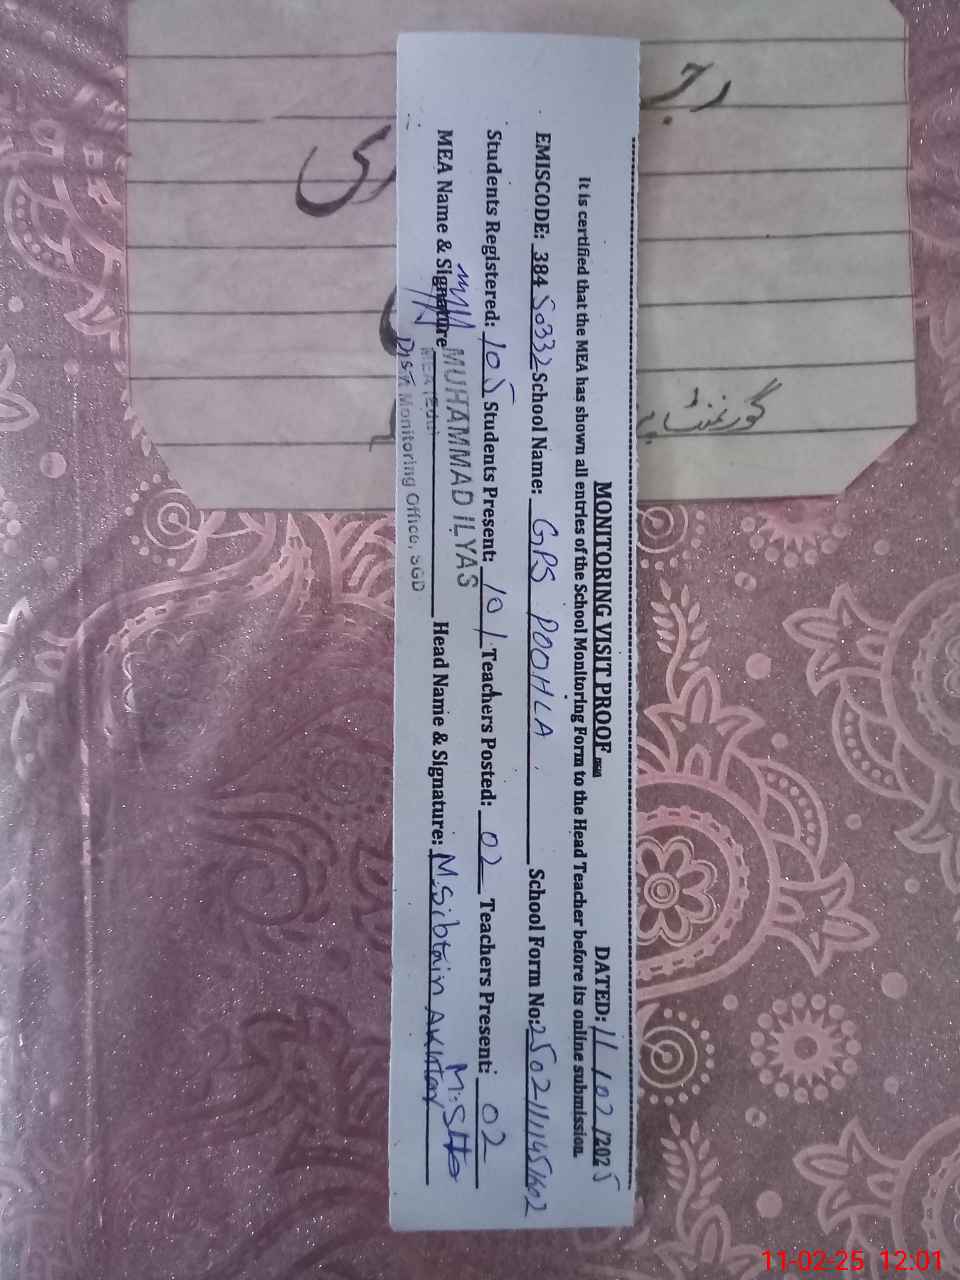 MONITORING VISIT PROOF DATED: 11/02/2025
It is certified that the MEA has shown all entries of the School Monitoring Form to the Head Teacher before its online submission.
EMISCODE: 38450332 School Name: GPS POOHLA School Form No: 2502-111451602
Students Registered: 105 Students Present: 101 Teachers Posted: 02 Teachers Present: 02
MEA Name & Signature MUHAMMAD ILYAS Head Name & Signature: M.Sibtain Akhtar
MEA (Edu)
Distt. Monitoring Office, SGD
گورنمنٹ
11-02-25 12:01